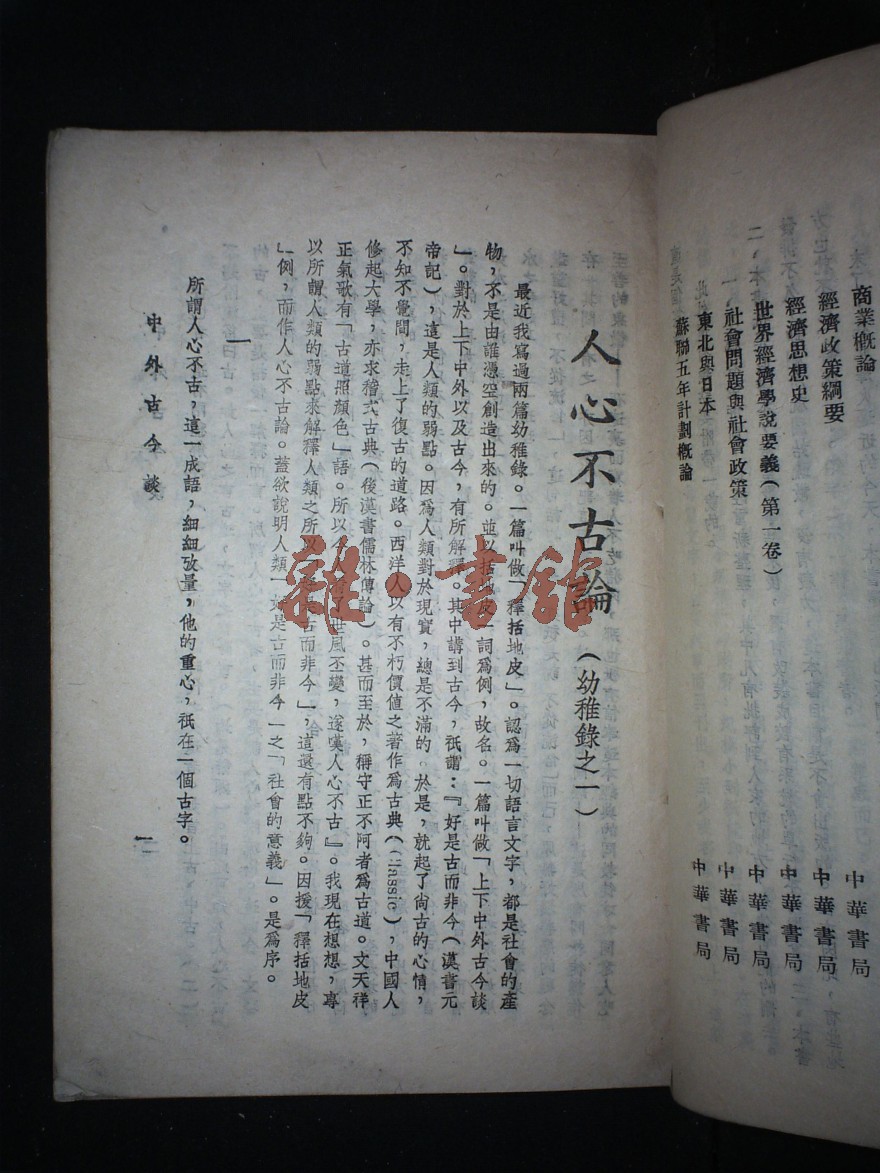 商業概論 中華書局
經濟政策綱要 中華書局
經濟思想史 中華書局
世界經濟學說要義(第一卷) 中華書局
社會問題與社會政策 中華書局
東北與日本 中華書局
蘇聯五年計劃概論
人心不古論(幼稚錄之一)
最近我寫過兩篇幼稚錄。一篇叫做「釋括地皮」。認爲一切語言文字,都是社會的產
物,不是由誰憑空創造出來的。並以括地皮一詞爲例,故名。一篇叫做「上下中外古今談
」。對於上下中外以及古今,有所解釋。其中講到古今,祇謂:『好是古而非今(漢書元
帝記),這是人類的弱點。因爲人類對於現實,總是不滿的。於是,就起了尙古的心情,
不知不覺間,走上了復古的道路。西洋人以有不朽價值之著作爲古典(Classic),中國人
修起大學,亦求稽式古典(後漢書儒林傳論)。甚而至於,稱守正不阿者爲古道。文天祥
正氣歌有「古道照顏色」語。所以今人看了世風丕變,遂嘆人心不古』。我現在想想,專
以所謂人類的弱點來解釋人類之所以好是古而非今」,這還有點不夠。因援「釋括地皮
」例,而作人心不古論。蓋欲說明人類「好是古而非今」之「社會的意義」。是爲序。
一
所謂人心不古,這一成語,細細攷量,他的重心,祇在一個古字。
中外古今談 一
雜·書館